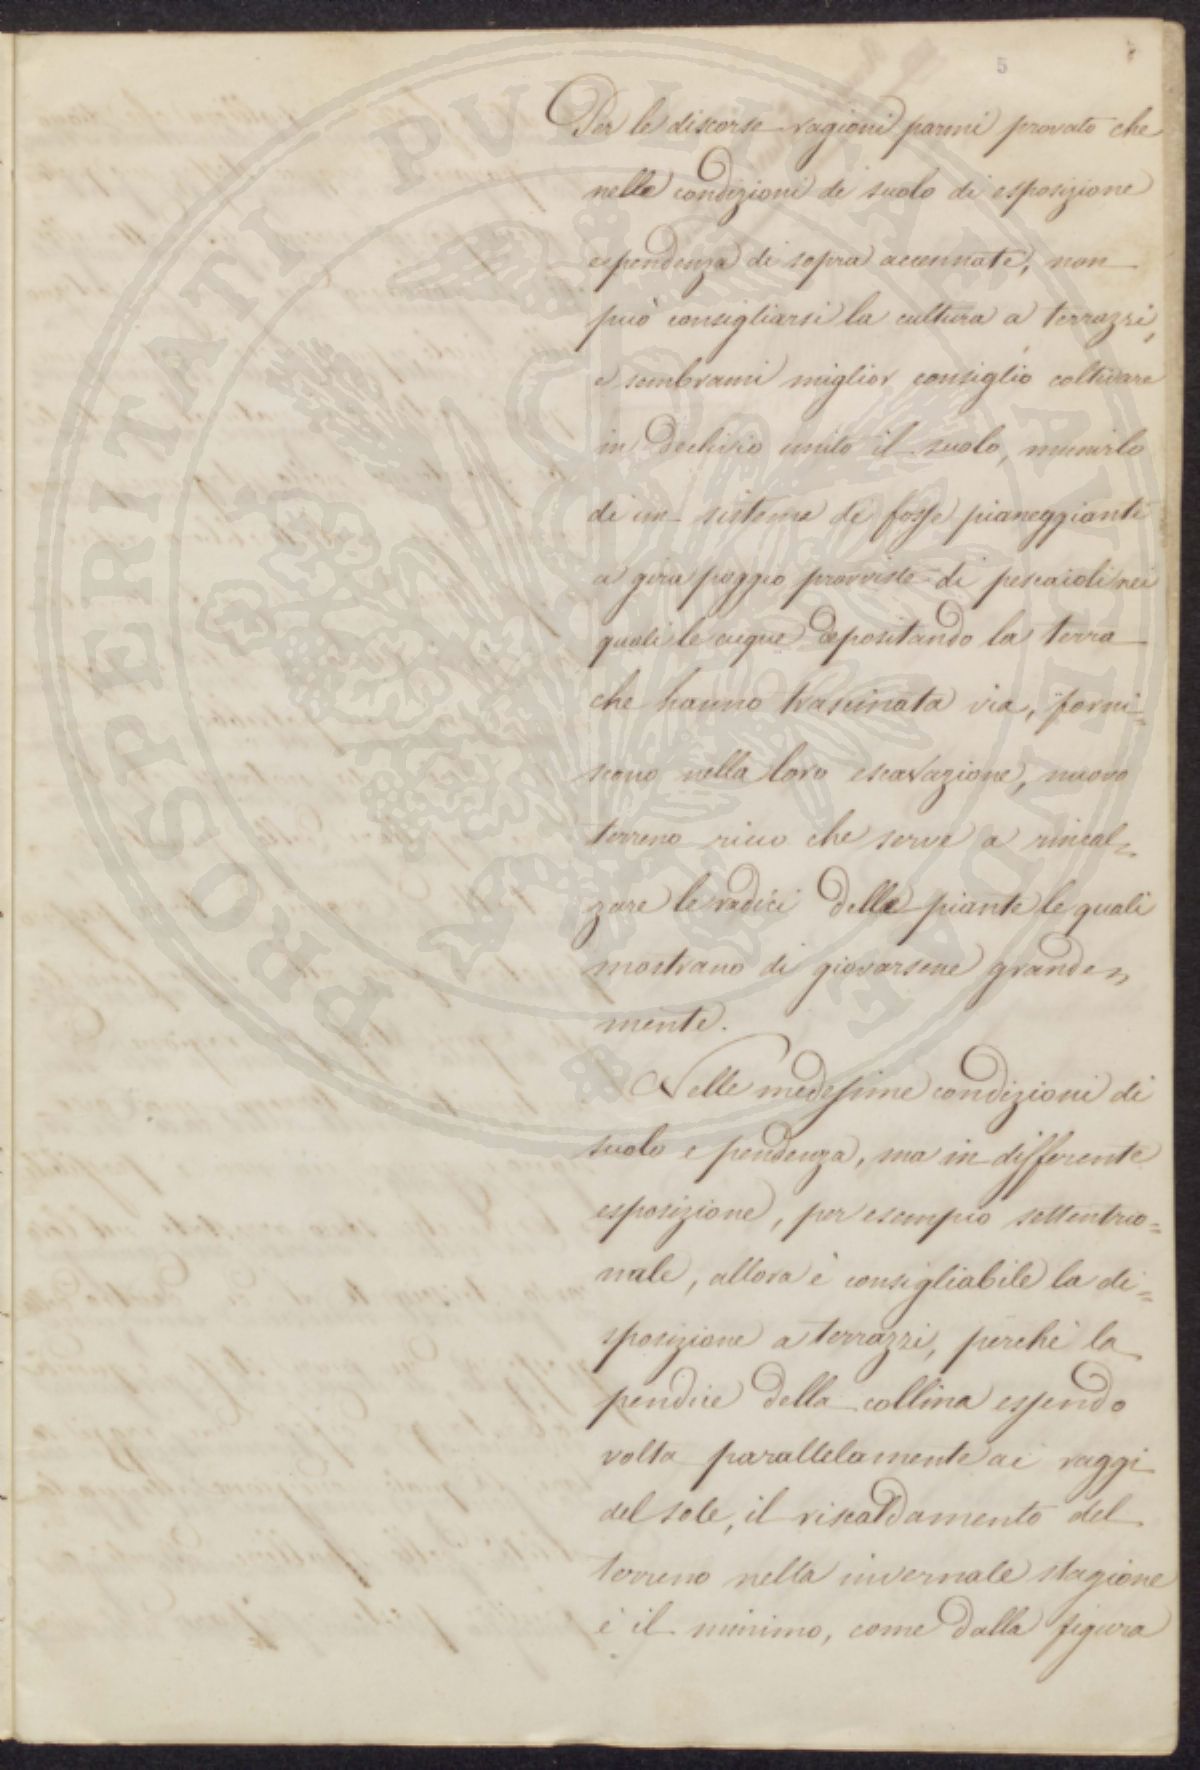 5
Per le discorse ragioni parmi provato che
nelle condizioni di suolo di esposizione
e pendenza di sopra accennate, non
può consigliarsi la cultura a terrazzi,
e sembrami miglior consiglio coltivare
in declivio unito il suolo, munirlo
di un sistema di fosse pianeggianti
a gira poggio provviste di pescaioli nei
quali le acque depositando la terra
che hanno trascinata via, forni=
scono nella loro escavazione, nuovo
terreno ricco che serve a rincal=
zare le radici delle piante le quali
mostrano di giovarsene grande=
mente.
Nelle medesime condizioni di
suolo e pendenza, ma in differente
esposizione, per esempio settentrio=
nale, allora è consigliabile la di=
sposizione a terrazzi, perchè la
pendice della collina essendo
volta parallelamente ai raggi
del sole, il riscaldamento del
terreno nella invernale stagione
è il minimo, come dalla figura
PROSPERITATI PUBLICAE AUGENDAE